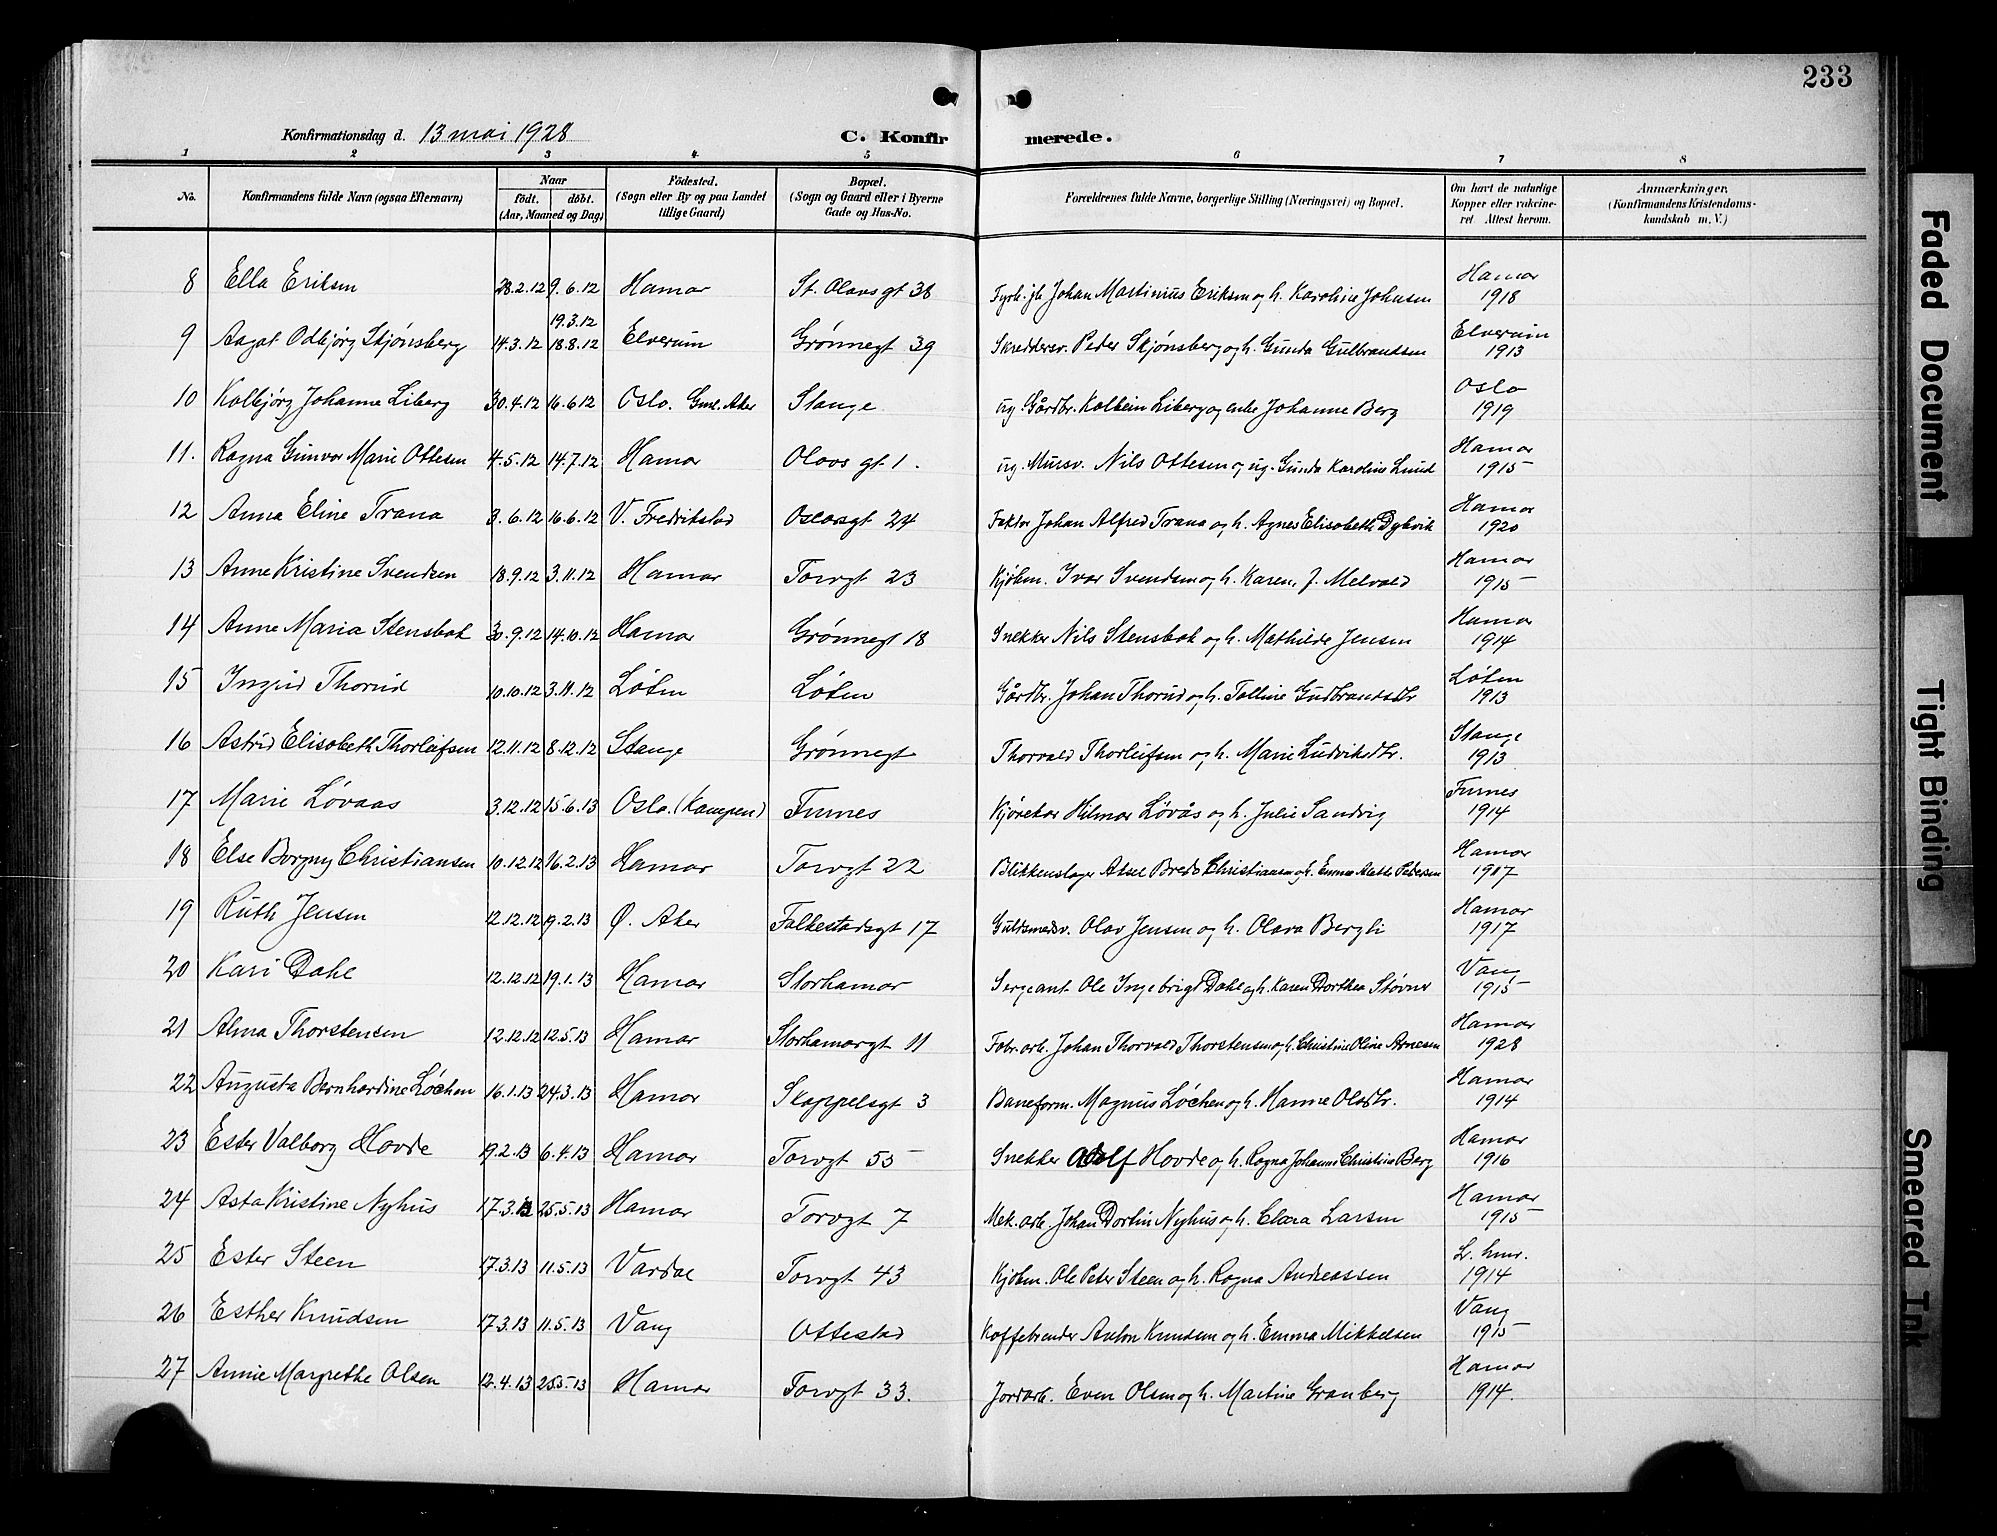 233
Konfirmationsdag d. 13 mai 1928
C. Konfirmerede.
1 2 3 4 5 6 7 8
No. Konfirmandens fulde Navn (ogsaa Efternavn) Naar født. døbt. (Aar, Maaned og Dag) Fødested. (Sogn eller By og paa Landet tillige Gaard) Bopæl. (Sogn og Gaard eller i Byerne Gade og Hus-No. Forældrenes fulde Navne, borgerlige Stilling (Næringsvei) og Bopæl. Om havt de naturlige Kopper eller vakcineret Attest herom. Anmærkninger. (Konfirmandens Kristendomskundskab m. V.)
8 Ella Eriksen 28.2.12 9.6.12 Hamar St. Olavsgt 38 Johan Martinius Eriksen og h. Karoline Johnsen Hamar 1918
9 Aagot Odbjørg Skjønsberg 14.3.12 19.3.12 18.8.12 Elverum Grønnegt 39 Skreddersv. Peder Skjønsberg og h. Gunda Gulbrandsen Elverum 1913
10 Kolbjørg Johanne Liberg 30.4.12 16.6.12 Oslo. Gml. Aker Stange ug. Gårdbr. Kolbein Liberg og enke Johanne Berg Oslo 1919
11. Ragna Gunvor Marie Ottesen 4.5.12 14.7.12 Hamar Olavs gt 1. ug. Mursv. Nils Ottesen og ug. Gunda Karoline Lund Hamar 1915
12 Anna Eline Trana 3.6.12 16.6.12 V. Fredrikstad Oslavsgt 24 Faktor Johan Alfred Trana og h. Agnes Elisabeth Dybvik Hamar 1920
13 Anne Kristine Svendsen 18.9.12 3.11.12 Hamar Torvgt 23 Kjøbm. Ivar Svendsen og h. Karen, J. Melvald Hamar 1915
14 Anne Maria Stensbak 30.9.12 14.10.12 Hamar Grønnegt 18 Snekker Nils Stensbak og h. Mathilde Jensen Hamar 1914
15 Ingrid Thorud 10.10.12 3.11.12 Løten Løten Gårdbr. Johan Thorud og h. Tolline Gudbrandsdtr Løten 1913
16 Astrid Elisabeth Thorleifsen 12.11.12 8.12.12 Stange Grønnegt Thorvald Thorleifsen og h. Marie Ludviksdtr. Stange 1913
17 Marie Løvaas 3.12.12 15.6.13 Oslo. (Kampen) Furnes Kjørekar Hilmar Løvås og h. Julie Sandvig Furnes 1914
18 Else Borgny Christiansen 10.12.12 16.2.13 Hamar Torvgt 22 Blikkenslager Aksel Bredo Christiansen og h. Emma Pedersen Hamar 1917
19 Ruth Jensen 12.12.12 19.2.13 Ø. Aker Falkestadsgt 17 Guldsmedsv. Olav Jensen og h. Olava Bergli Hamar 1917
20 Kari Dahl 12.12.12 19.1.13 Hamar Storhamar Sergeant Ole Ingebrigt Dahl og h. Karen Dorthea Støvner Vang 1915
21 Alma Thorstensen 12.12.12 12.5.13 Hamar Storhamargt 11 Fabr.arb. Johan Thorvald Thorstensen og h. Christine Oline Arnesen Hamar 1928
22 Augusta Bernhardine Løchen 16.1.13 24.3.13 Hamar Skappelsgt 3 Baneform. Magnus Løchen og h. Hanne Olsdtr. Hamar 1914
23 Ester Valborg Hovde 19.2.13 6.4.13 Hamar Torvgt 55 Snekker Adolf Hovde og h. Ragna Johanne Christine Berg Hamar 1916
24 Asta Kristine Nyhus 17.3.13 25.5.13 Hamar Torvgt 7 Mek.arb. Johan Dortin Nyhus og h. Clara Larsen Hamar 1915
25 Ester Steen 17.3.13 11.5.13 Vardal Torvgt 43 Kjøbm. Ole Peter Steen og h. Ragna Andreassen L. hmr. 1914
26 Esther Knudsen 17.3.13 11.5.13 Vang Ottestad Kaffebrender Anton Knudsen og h. Emma Mikkelsen Vang 1915
27 Annie Margrethe Olsen 12.4.13 25.5.13 Hamar Torvgt 33. Jordarb. Even Olsen og h. Martine Granberg Hamar 1914.
Faded Document
Tight Binding
Smeared Ink